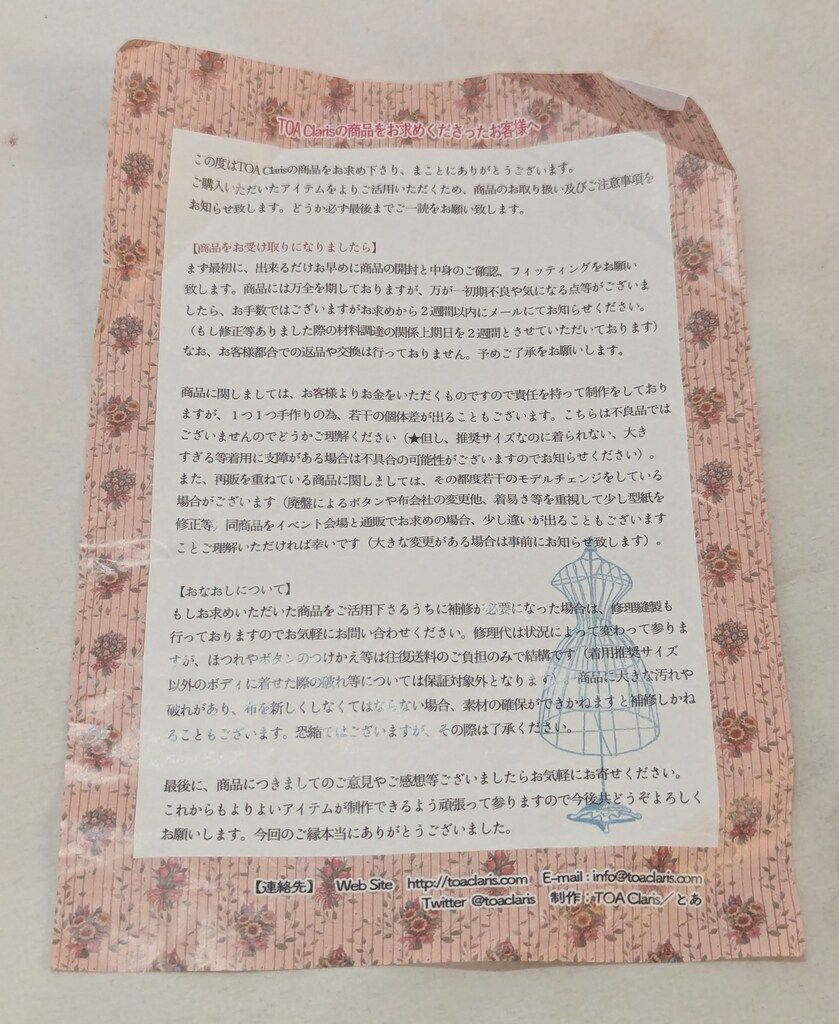 TOA Clarisの商品をお求めくださったお客様へ
この度はTOA Clarisの商品をお求め下さり、まことにありがとうございます。
ご購入いただいたアイテムをよりご活用いただくため、商品のお取り扱い及びご注意事項を
お知らせ致します。どうか必ず最後までご一読をお願い致します。
【商品をお受け取りになりましたら】
まず最初に、出来るだけお早めに商品の開封と中身のご確認、フィッティングをお願い
致します。商品には万全を期しておりますが、万が一初期不良や気になる点等がございま
したら、お手数ではございますがお求めから２週間以内にメールにてお知らせください。
（もし修正等ありました際の材料調達の関係上期日を２週間とさせていただいております）
なお、お客様都合での返品や交換は行っておりません。予めご了承をお願いします。
商品に関しましては、お客様よりお金をいただくものですので責任を持って制作をしており
ますが、１つ１つ手作りの為、若干の個体差が出ることもございます。こちらは不良品では
ございませんのでどうかご理解ください（★但し、推奨サイズなのに着られない、大き
すぎる等着用に支障がある場合は不具合の可能性がございますのでお知らせください）。
また、再販を重ねている商品に関しましては、その都度若干のモデルチェンジをしている
場合がございます（廃盤によるボタンや布会社の変更他、着易さ等を重視して少し型紙を
修正等）同商品をイベント会場と通販でお求めの場合、少し違いが出ることもございます
ことご理解いただければ幸いです（大きな変更がある場合は事前にお知らせ致します）。
【おなおしについて】
もしお求めいただいた商品をご活用下さるうちに補修が必要になった場合は、修理縫製も
行っておりますのでお気軽にお問い合わせください。修理代は状況によって変わって参りま
すが、ほつれやボタンのつけかえ等は往復送料のご負担のみで結構です（着用推奨サイズ
以外のボディに着せた際の破れ等については保証対象外となります） 商品に大きな汚れや
破れがあり、布を新しくしなくてはならない場合、素材の確保ができかねますと補修しかね
ることもございます。恐縮ではございますが、その際は了承ください。
最後に、商品につきましてのご意見やご感想等ございましたらお気軽にお寄せください。
これからもよりよいアイテムが制作できるよう頑張って参りますので今後共どうぞよろしく
お願いします。今回のご縁本当にありがとうございました。
【連絡先】 Web Site http://toaclaris.com E-mail : info@toaclaris.com
Twitter @toaclaris 制作：TOA Claris／とあ